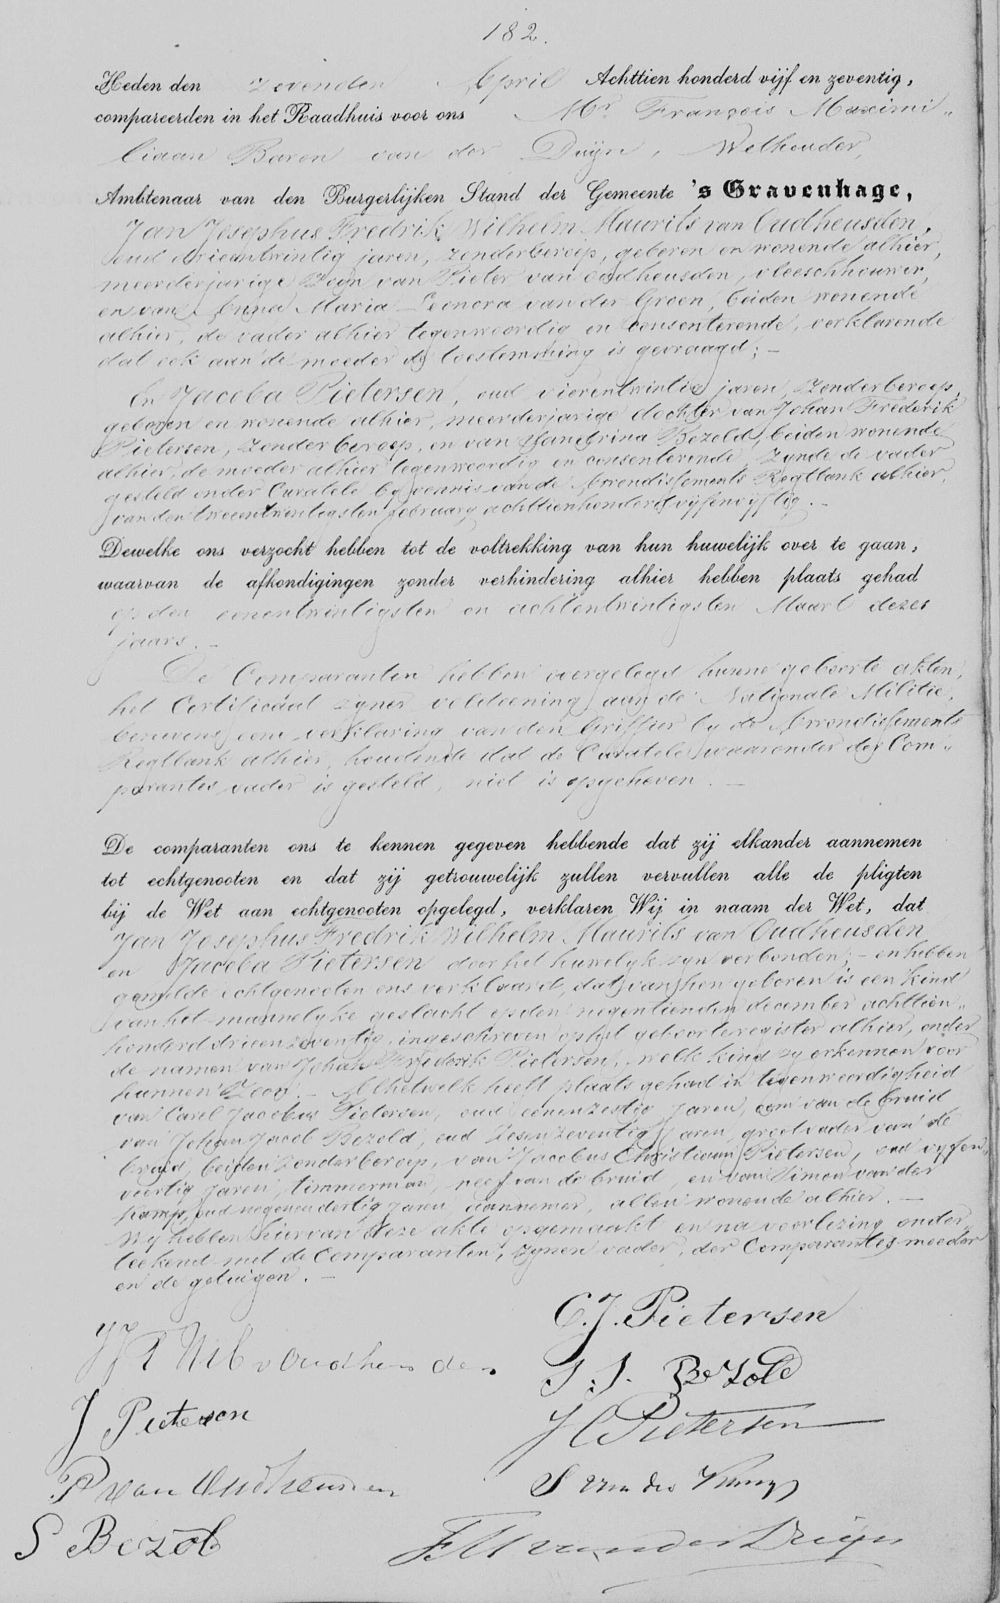 182.
Heden den zevenden April Achttien honderd vijf en zeventig,
compareerden in het Raadhuis voor ons Mr. François Maximi„
liaan Baron van der Duijn, Wethouder,
Ambtenaar van den Burgerlijken Stand der Gemeente 's Gravenhage,
Jan Josephus Fredrik Wilhelm Maurits van Oudheusden,
oud drieentwintig jaren, zonder beroep, geboren en wonende alhier,
meerderjarige zoon van Pieter van Oudheusden, vleeschhouwer,
en van Anna Maria Leonora van der Groen, beiden wonende
alhier, de vader alhier tegenwoordig en consenterende, verklarende
dat ook aan de moeder de toestemming is gevraagd; –
En Jacoba Pietersen, oud vierentwintig jaren, zonder beroep,
geboren en wonende alhier, meerderjarige dochter van Johan Frederik
Pietersen, zonder beroep, en van Sandrina Bezold, beiden wonende
alhier, de moeder alhier tegenwoordig en consenterende, zynde de vader
gesteld onder Curatele by vonnis van de Arrondissements Regtbank alhier,
van den tweeentwintigsten february achttienhonderd vyfenvyftig. –
Dewelke ons verzocht hebben tot de voltrekking van hun huwelijk over te gaan,
waarvan de afkondigingen zonder verhindering alhier hebben plaats gehad
op den eenentwintigsten en achtentwintigsten Maart dezes
jaars. –
De Comparanten hebben overgelegd hunne geboorte akten,
het Certificaat zyner voldoening aan de Nationale Militie,
benevens eene verklaring van den Griffier by de Arrondissements
Regtbank alhier, houdende dat de Curatele waaronder der Com„
parantes vader is gesteld, niet is opgeheven. –
De comparanten ons te kennen gegeven hebbende dat zij elkander aannemen
tot echtgenooten en dat zij getrouwelijk zullen vervullen alle de pligten
bij de Wet aan echtgenooten opgelegd, verklaren Wij in naam der Wet, dat
Jan Josephus Fredrik Wilhelm Maurits van Oudheusden
en Jacoba Pietersen door het huwelyk zyn verbonden; – en hebben
gemelde echtgenooten ons verklaard, dat van hen geboren is een kind
van het mannelyke geslacht op den negentienden december achttien„
honderd drieenzeventig, ingeschreven op het geboorteregister alhier, onder
de namen van Johan Frederik Pietersen, welk kind zy erkennen voor
hunnen Zoon. – Al hetwelk heeft plaats gehad in tegenwoordigheid
van Carel Jacobus Pietersen, oud eenenzestig jaren, oom van de bruid
van Johan Jacob Bezold, oud zesenzeventig jaren, grootvader van de
bruid, beiden zonder beroep, van Jacobus Christiaan Pietersen, oud vyfen„
veertig jaren, timmerman, neef van de bruid, en van Simon van der
Kamp, oud negenendertig jaren, aannemer, allen wonende alhier. –
Wy hebben hiervan deze akte opgemaakt en na voorlezing onder„
teekend met de Comparanten, zynen vader, der Comparantes moeder
en de getuigen. –
C. J. Pietersen
J J F W M v Oudheusden
J. J. Bezold
J Pietersen
J C Pietersen
P van Oudheusden
S van der Kamp
S Bezold
F M van der Duijn